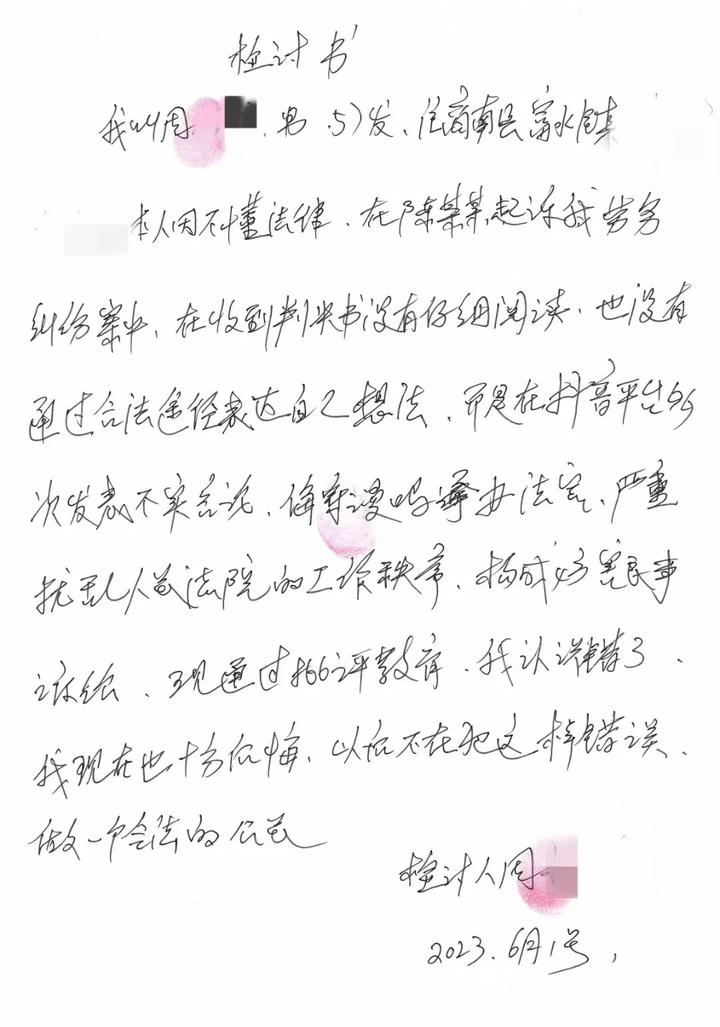 检讨书
我叫周 男 . 住商南县富水镇
本人因不懂法律、在陈某某起诉我劳务
纠纷案中, 在收到判决书没有仔细阅读、也没有
通过合法途径表达自己想法、而是在抖音平台多
次发表不实言论、侮辱谩骂承办法官、严重
扰乱人民法院的工作秩序、构成妨害民事
诉讼、现通过批评教育、我认识错了、
我现在也十分后悔、以后不在犯这样错误、
做一个合法的公民
检讨人周
2023.6月1号,